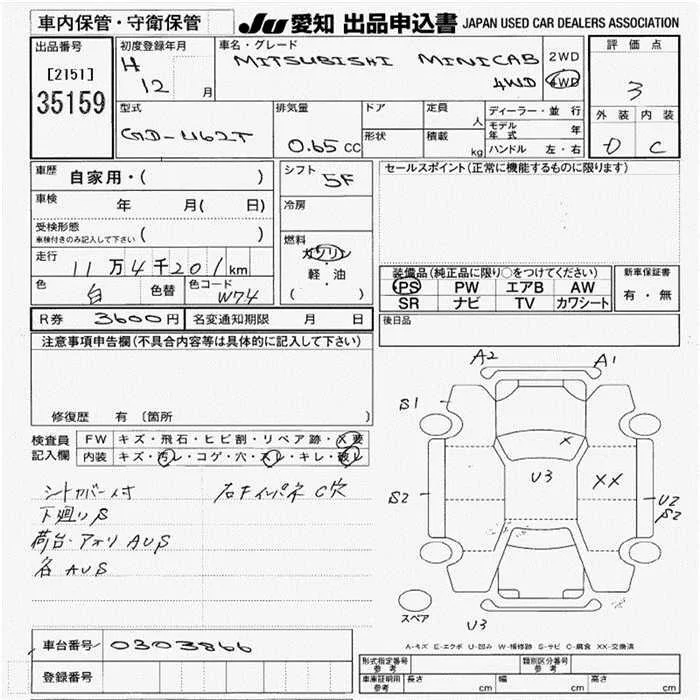 車内保管・守衛保管 JU 愛知 出品申込書 JAPAN USED CAR DEALERS ASSOCIATION
出品番号
[2151]
35159
初度登録年月
H 12 月
車名・グレード
MITSUBISHI MINICAB
4WD
2WD
4WD
評価点
3
外装 内装
D C
型式
GD-U62T
排気量
0.65 CC
ドア
形状
定員 人
積載 kg
ディーラー・並行
モデル年式 年
ハンドル 左・右
車歴 自家用・( )
車検 年 月( 日)
受検形態
車検付きのみ記入して下さい
走行 11万4千201km
色 白 色替 色コード W74
シフト 5F
冷房
燃料
ガソリン
・
軽・油
( )
セールスポイント(正常に機能するものに限ります)
装備品(純正品に限り○をつけてください)
PS PW エアB AW
SR ナビ TV カワシート
新車保証書
有・無
R券 3600円 名変通知期限 月 日
後日品
注意事項申告欄(不具合内容等は具体的に記入して下さい)
修復歴 有 〔箇所 〕
検査員記入欄
FW キズ・飛石・ヒビ割・リペア跡・X要
内装 キズ・汚レ・コゲ・穴・スレ・キレ・破レ
シートカバー付 右Fインパネ C穴
下廻りS
荷台・アオリ AUS
各 AUS
A2 A1
S1
U3 XX
S2 U2
S2
スペア
U3
A-キズ E-エクボ U-凹み W-補修跡 S-サビ C-腐食 XX-交換済
車台番号 0303866
登録番号
形式指定番号 参考 類別区分番号 参考
車庫証明用 参考 長さ cm 幅 cm 高さ cm